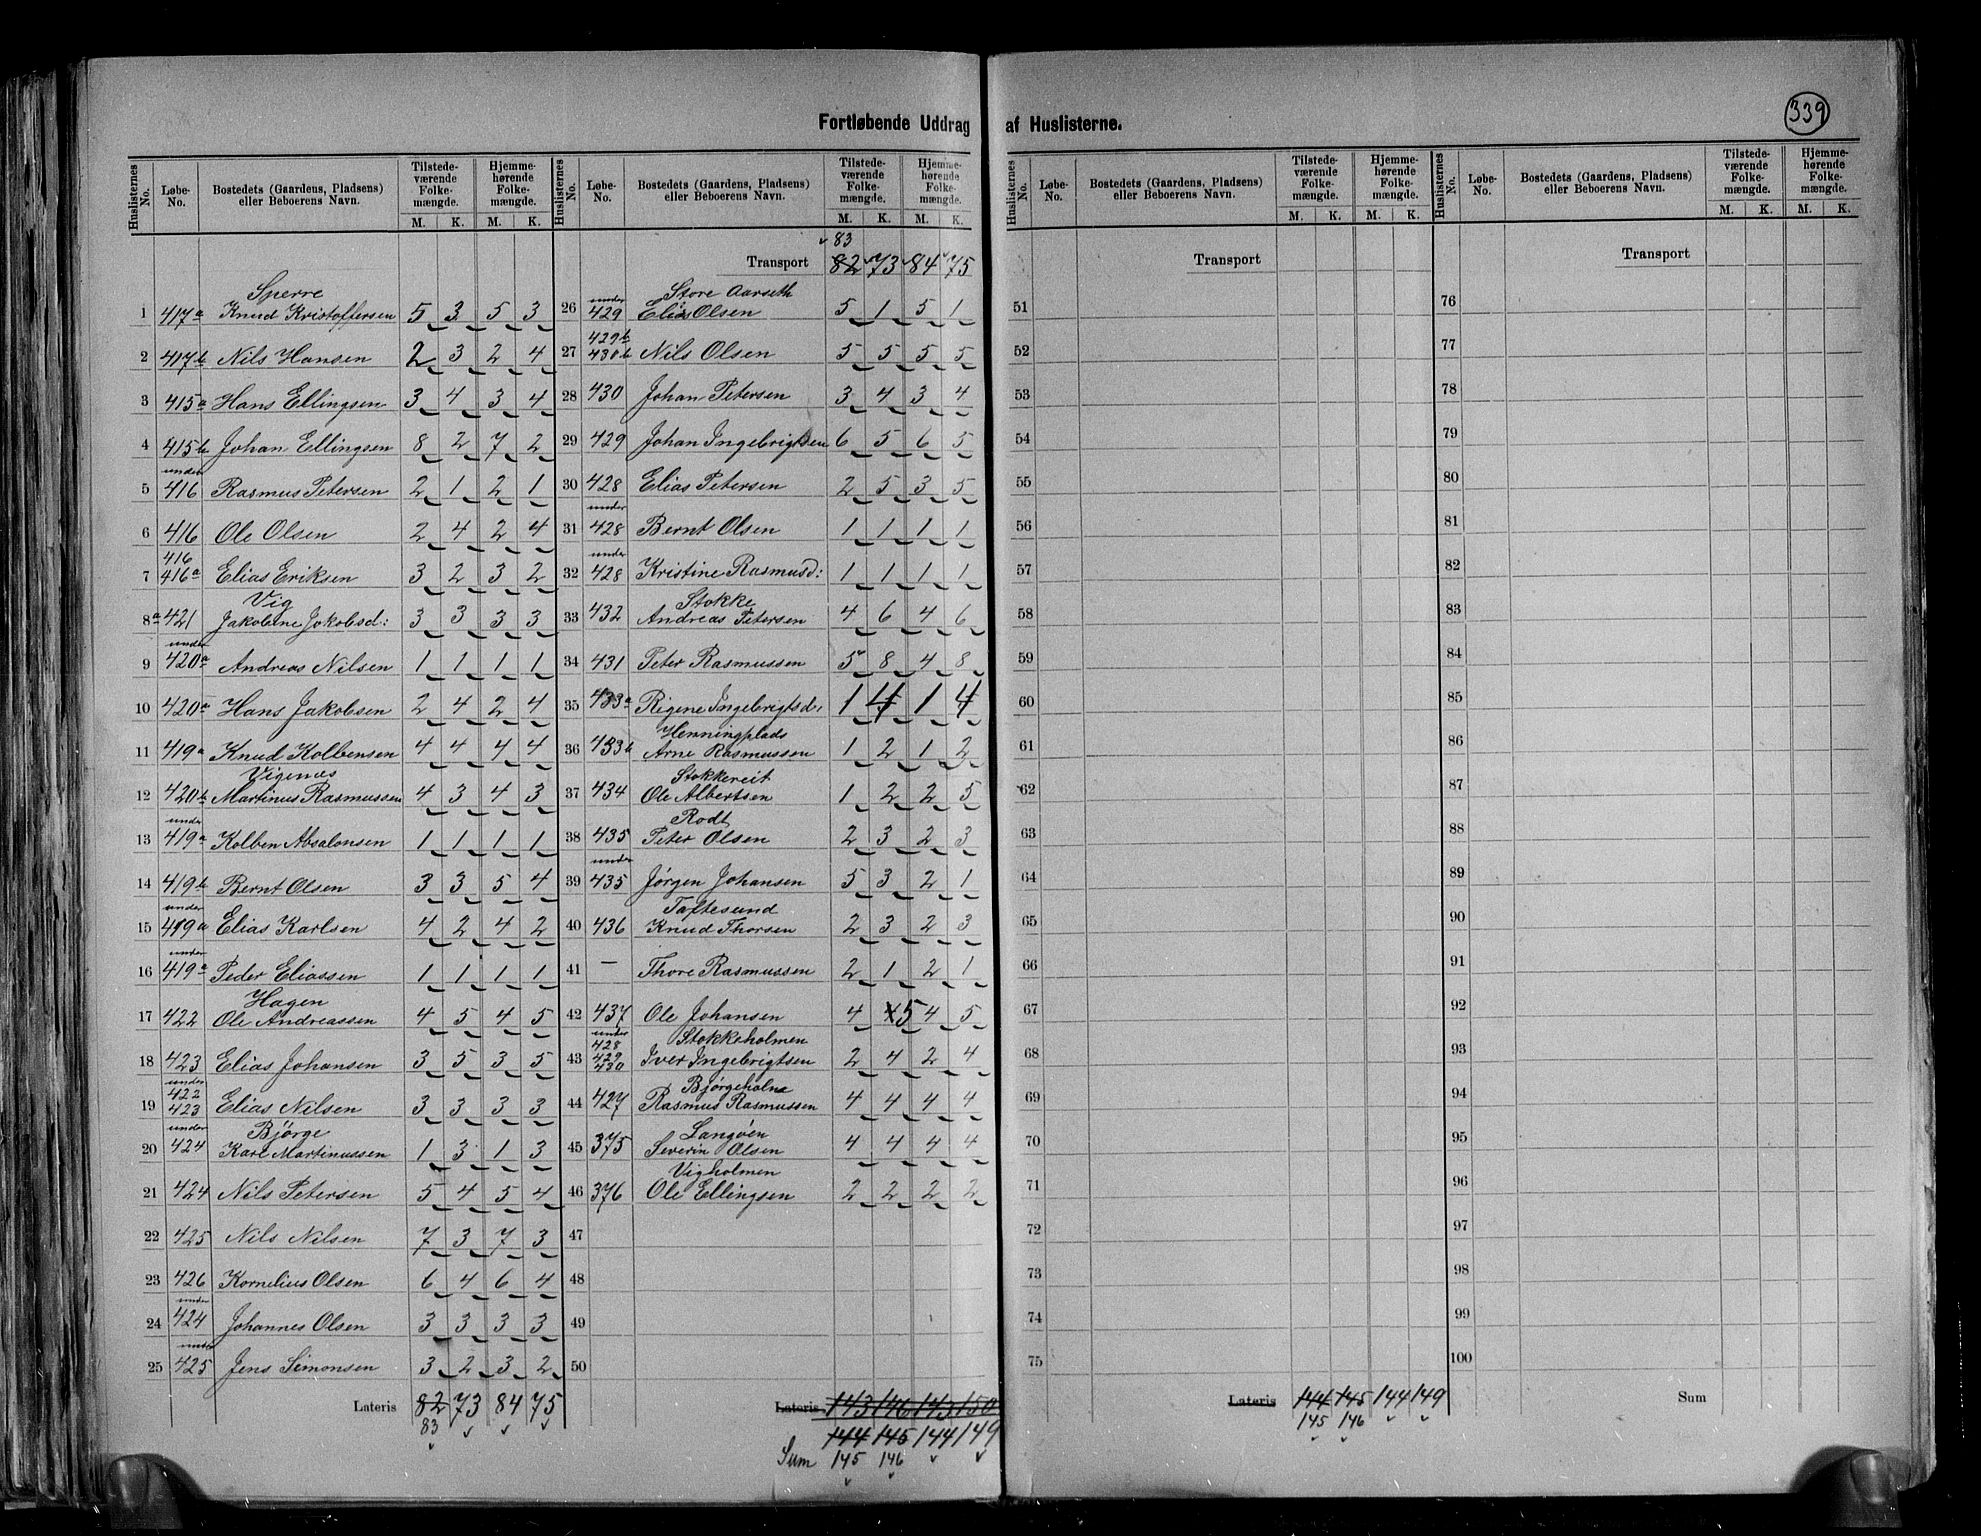 339
Fortløbende Uddrag af Huslisterne.
Huslisternes No. Løbe-No. Bostedets (Gaardens, Pladsens) eller Beboerens Navn. Tilstedeværende Folkemængde. M. K. Hjemmehørende Folkemængde. M. K.
Sperre
1 417a Knud Kristoffersen 5 3 5 3
2 417b Nils Hansen 2 3 2 4
3 415a Hans Ellingsen 3 4 3 4
4 415b Johan Ellingsen 8 2 7 2
5 under 416 Rasmus Petersen 2 1 2 1
6 416 Ole Olsen 2 4 2 4
7 416 416a Elias Eriksen 3 2 3 2
Vig
8a 421 Jakobine Jokobsd: 3 3 3 3
9 under 420a Andreas Nilsen 1 1 1 1
10 420a Hans Jakobsen 2 4 2 4
11 419a Knud Kolbensen 4 4 4 4
Vigenæs
12 420b Martinus Rasmussen 4 3 4 3
13 under 419a Kolben Absalonsen 1 1 1 1
14 419b Bernt Olsen 3 3 5 4
15 under 419a Elias Karlsen 4 2 4 2
16 under 419a Peder Eliassen 1 1 1 1
Hagen
17 422 Ole Andreassen 4 5 4 5
18 423 Elias Johansen 3 5 3 5
19 under 422 423 Elias Nilsen 3 3 3 3
Bjørge
20 under 424 Karl Martinussen 1 3 1 3
21 424 Nils Petersen 5 4 5 4
22 425 Nils Nilsen 7 3 7 3
23 426 Kornelius Olsen 6 4 6 4
24 under 424 Johannes Olsen 3 3 3 3
25 under 425 Jens Simonsen 3 2 3 2
Lateris 82 73 84 75
83
Huslisternes No. Løbe-No. Bostedets (Gaardens, Pladsens) eller Beboerens Navn. Tilstedeværende Folkemængde. M. K. Hjemmehørende Folkemængde. M. K.
83
Transport 82 73 84 75
Store Aarseth
26 under 429 Elias Olsen 5 1 5 1
27 429b 430b Nils Olsen 5 5 5 5
28 430 Johan Petersen 3 4 3 4
29 429 Johan Ingebrigtsen 6 5 6 5
30 428 Elias Petersen 2 5 3 5
31 under 428 Bernt Olsen 1 1 1 1
32 under 428 Kristine Rasmusd: 1 1 1 1
Stokke
33 432 Andreas Petersen 4 6 4 6
34 431 Peter Rasmussen 5 8 4 8
35 433a Rigene Ingebrigtsd: 1 4 1 4
Henningplads
36 433b Arne Rasmussen 1 2 1 2
Stokkereit
37 434 Ole Albertsen 1 2 2 5
Rodt
38 435 Peter Olsen 2 3 2 3
39 under 435 Jørgen Johansen 5 3 2 1
Taftesund
40 436 Knud Thorsen 2 3 2 3
41 — Thore Rasmussen 2 1 2 1
42 437 Ole Johansen 4 5 4 5
Stokkeholmen
43 under 428 429 430 Iver Ingebrigtsen 2 4 2 4
Bjørgeholm
44 427 Rasmus Rasmussen 4 4 4 4
Langøen
45 375 Severin Olsen 4 4 4 4
Vigholmen
46 376 Ole Ellingsen 2 2 2 2
47
48
49
50
Lateris 143 146 143 150
144 145 144 149
Sum 145 146
Huslisternes No. Løbe-No. Bostedets (Gaardens, Pladsens) eller Beboerens Navn. Tilstedeværende Folkemængde. M. K. Hjemmehørende Folkemængde. M. K.
Transport
51
52
53
54
55
56
57
58
59
60
61
62
63
64
65
66
67
68
69
70
71
72
73
74
75
Lateris 144 145 144 149
145 146
Huslisternes No. Løbe-No. Bostedets (Gaardens, Pladsens) eller Beboerens Navn. Tilstedeværende Folkemængde. M. K. Hjemmehørende Folkemængde. M. K.
Transport
76
77
78
79
80
81
82
83
84
85
86
87
88
89
90
91
92
93
94
95
96
97
98
99
100
Sum